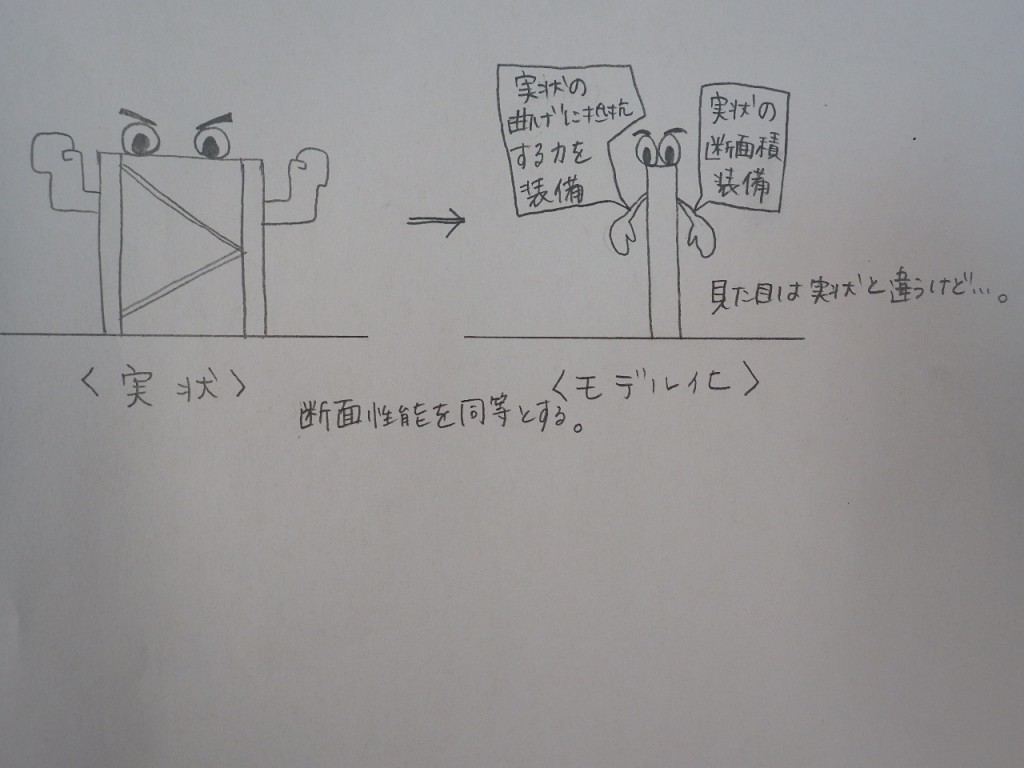 実状の
曲げに抵抗
する力を
装備
実状の
断面積
装備
見た目は実状と違うけど…。
〈実状〉
〈モデル化〉
断面性能を同等とする。